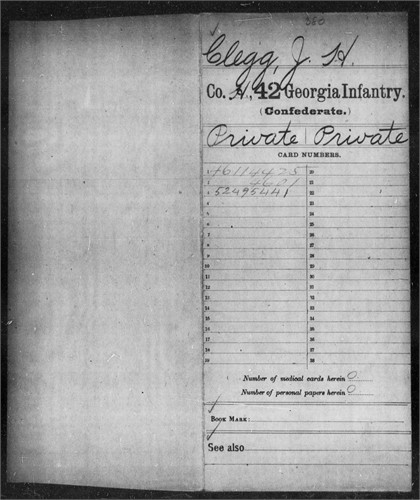 380
Clegg, J. H.
Co. H, 42 Georgia Infantry.
(Confederate.)
Private | Private
CARD NUMBERS.
1 46114425 20
2 4621 21
3 52495441 22
4 23
5 24
6 25
7 26
8 27
9 28
10 29
11 30
12 31
13 32
14 33
15 34
16 35
17 36
18 37
19 38
Number of medical cards herein 0
Number of personal papers herein 0
BOOK MARK:
See also